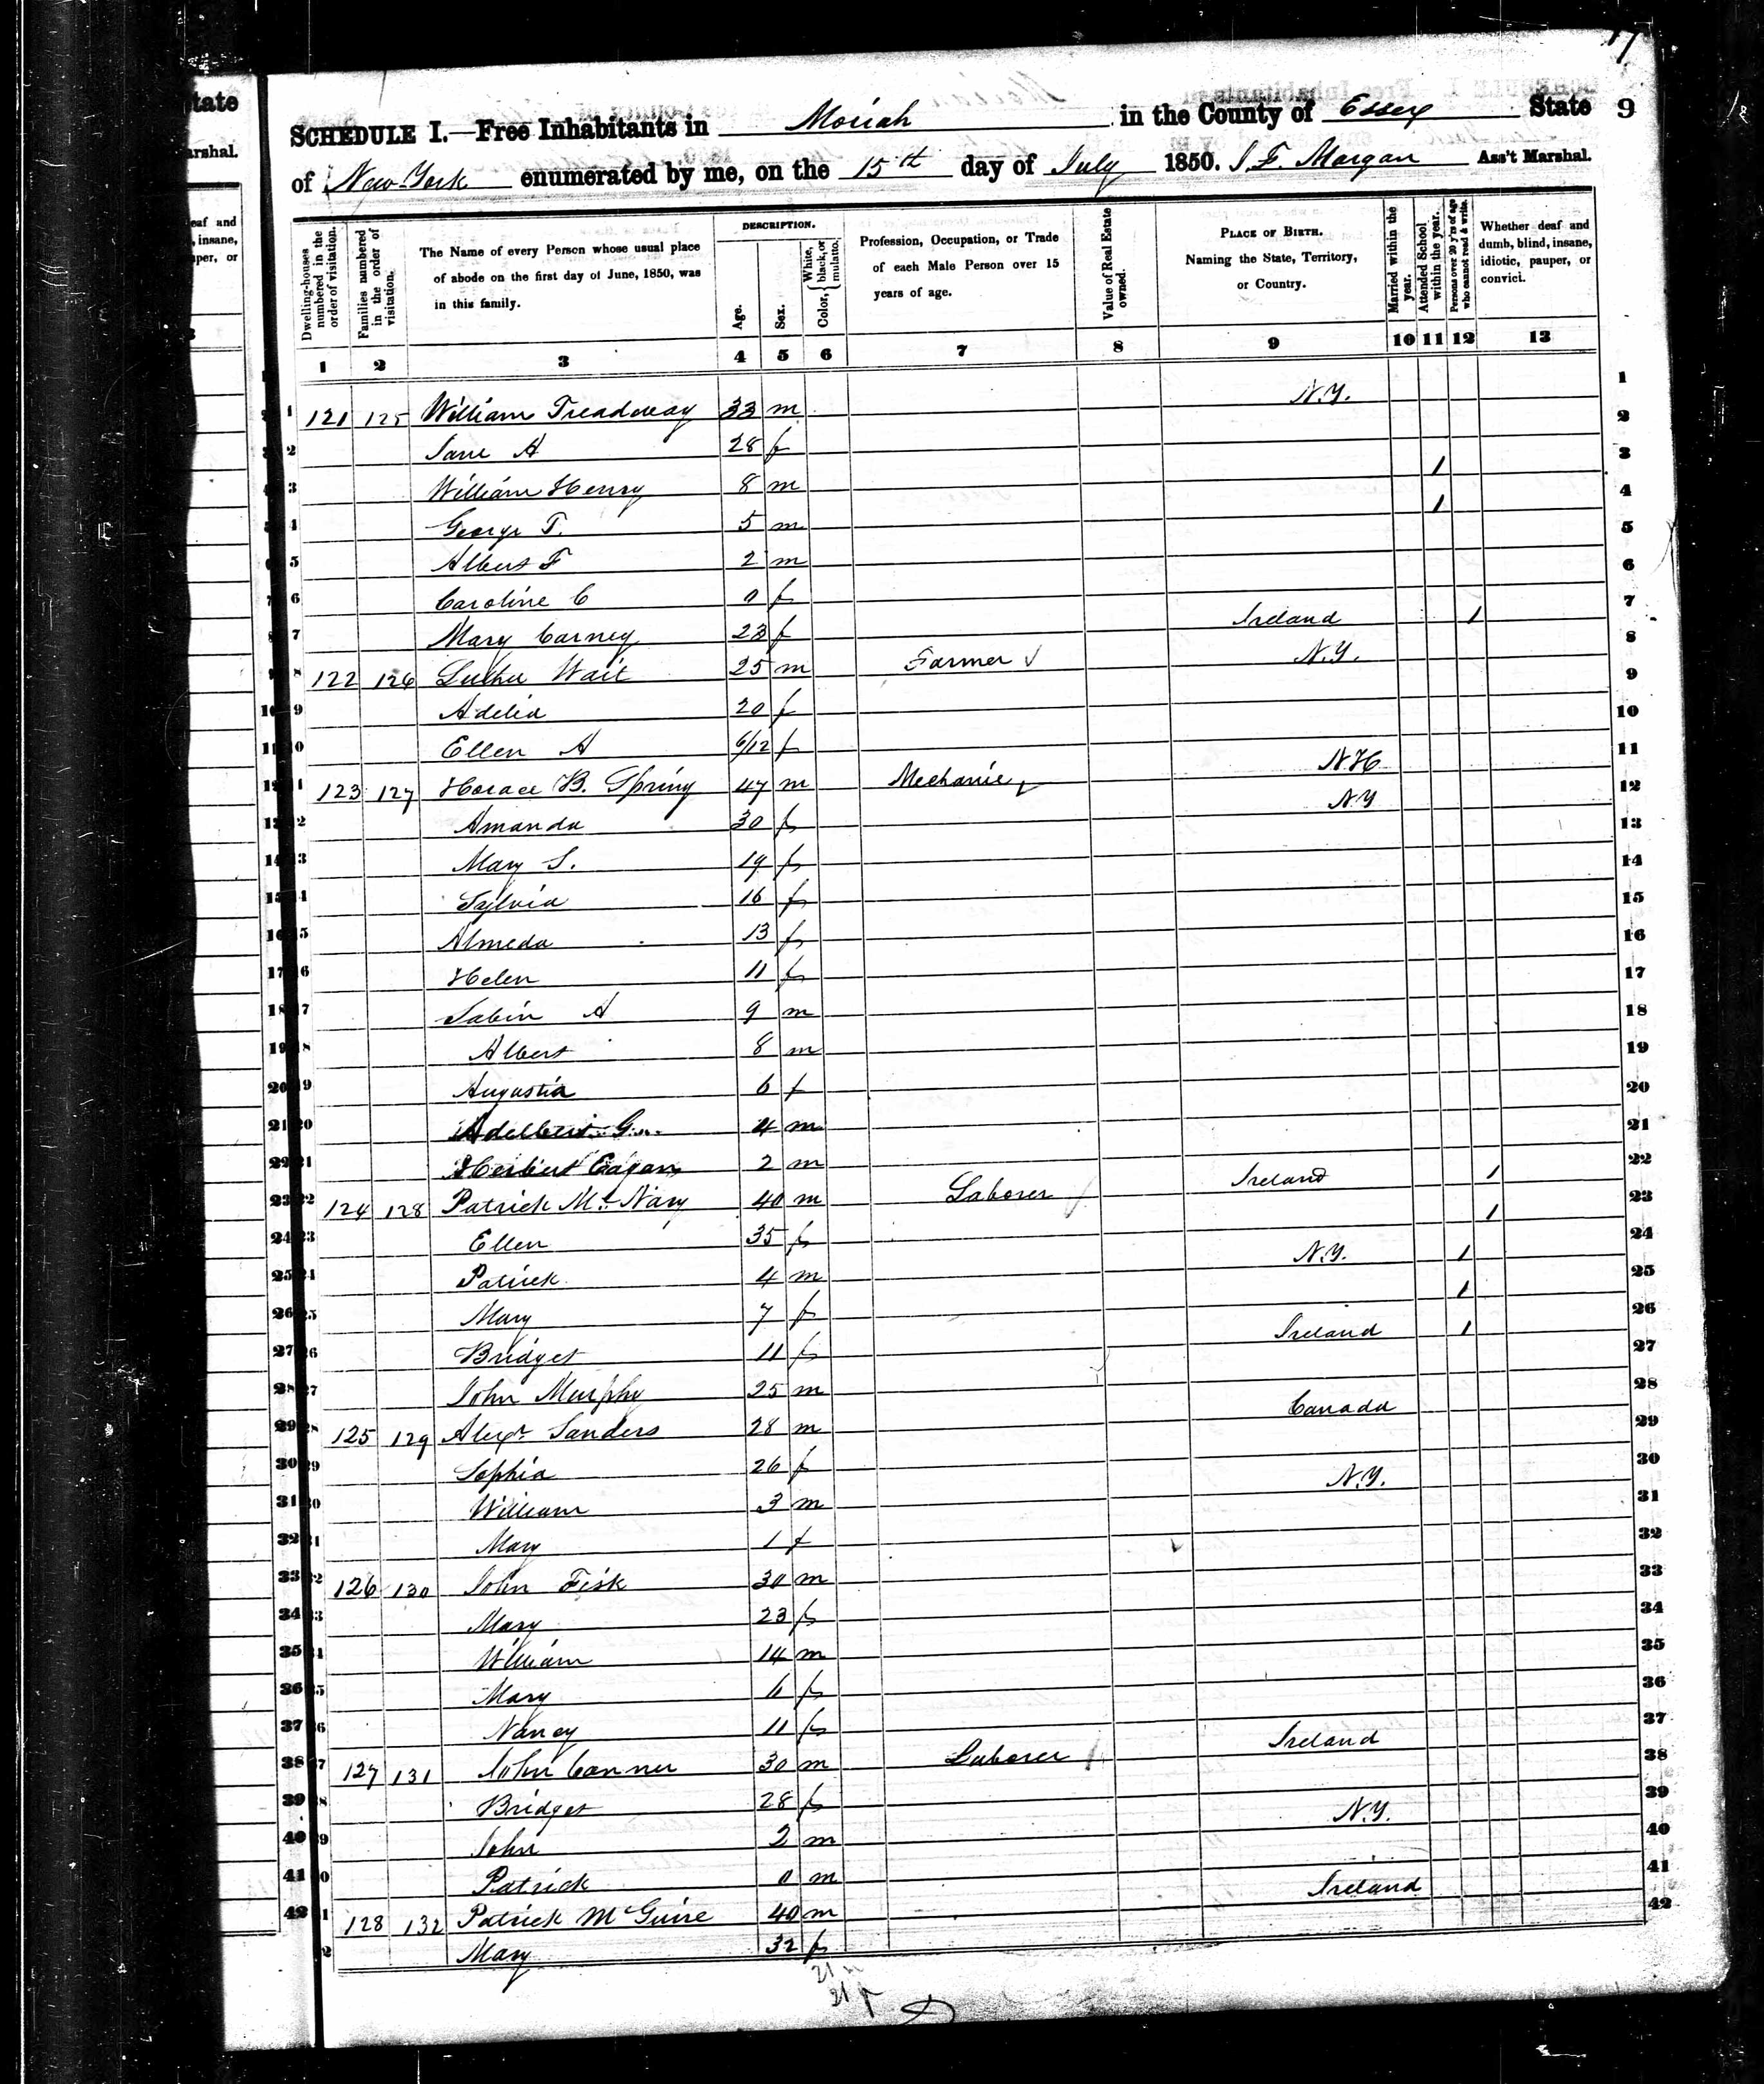 17
SCHEDULE I.—Free Inhabitants in Moriah in the County of Essex State 9
of New-York enumerated by me, on the 15th day of July 1850. S. F. Morgan Ass't Marshal.
tate
arshal.
eaf and
, insane,
uper, or
Dwelling-houses numbered in the order of visitation.
Families numbered in the order of visitation.
The Name of every Person whose usual place of abode on the first day of June, 1850, was in this family.
DESCRIPTION.
Age.
Sex.
Color, { White, black, or mulatto.
Profession, Occupation, or Trade of each Male Person over 15 years of age.
Value of Real Estate owned.
PLACE OF BIRTH. Naming the State, Territory, or Country.
Married within the year.
Attended School within the year.
Persons over 20 y'rs of age who cannot read & write.
Whether deaf and dumb, blind, insane, idiotic, pauper, or convict.
1 2 3 4 5 6 7 8 9 10 11 12 13
1 121 125 William Treadway 33 m N.Y. 1
2 Jane A 28 f 2
3 William Henry 8 m 1 3
4 George T. 5 m 1 4
5 Albert F 2 m 5
6 Caroline C 0 f 6
7 Mary Carney 23 f Ireland 1 7
8 122 126 Luther Wait 25 m Farmer N.Y. 8
9 Adelia 20 f 9
10 Ellen A 6/12 f 10
11 123 127 Horace B. Spring 47 m Mechanic N.H 11
12 Amanda 30 f N.Y 12
13 Mary S. 19 f 13
14 Sylvia 16 f 14
15 Almeda 13 f 15
16 Helen 11 f 16
17 Sabin A 9 m 17
18 Albert 8 m 18
19 Augustia 6 f 19
20 Adelbert G. 4 m 20
21 Herbert Eagan 2 m 21
22 124 128 Patrick Mc Nary 40 m Laborer Ireland 1 22
23 Ellen 35 f 1 23
24 Patrick 4 m N.Y. 1 24
25 Mary 7 f 1 25
26 Bridget 11 f Ireland 1 26
27 John Murphy 25 m 27
28 125 129 Alexr. Sanders 28 m Canada 28
29 Sophia 26 f 29
30 William 3 m N.Y. 30
31 Mary 1 f 31
32 126 130 John Fisk 30 m 32
33 Mary 23 f 33
34 William 14 m 34
35 Mary 11 f 35
36 Nancy 11 f 36
37 127 131 John Conner 30 m Laborer Ireland 37
38 Bridget 28 f 38
39 John 2 m N.Y. 39
40 Patrick 0 m 40
41 128 132 Patrick McGuire 40 m Ireland 41
42 Mary 32 f 42
21 m
21 f